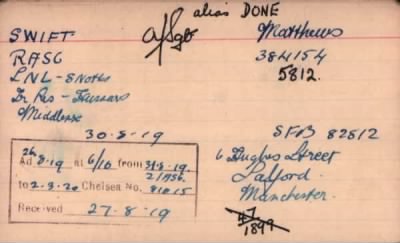 alias DONE
SWIFT A/Sgt Matthews
RASC 384154
LNL - S Notts 5812.
Tr Res - Hussars
Middlesex
30-8-19 SFB 82512
26
Ad 8.19 at 6/10 from 31-8-19.
to 2-3-20 Chelsea No. 81015
Received 27-8-19
6 Street
Salford
Manchester.
47
1899